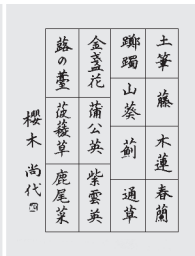 土筆 藤 木蓮 春蘭
躑躅 山葵 薊 通草
金盞花 蒲公英 紫雲英
蕗の薹 菠薐草 鹿尾菜
櫻木尚代